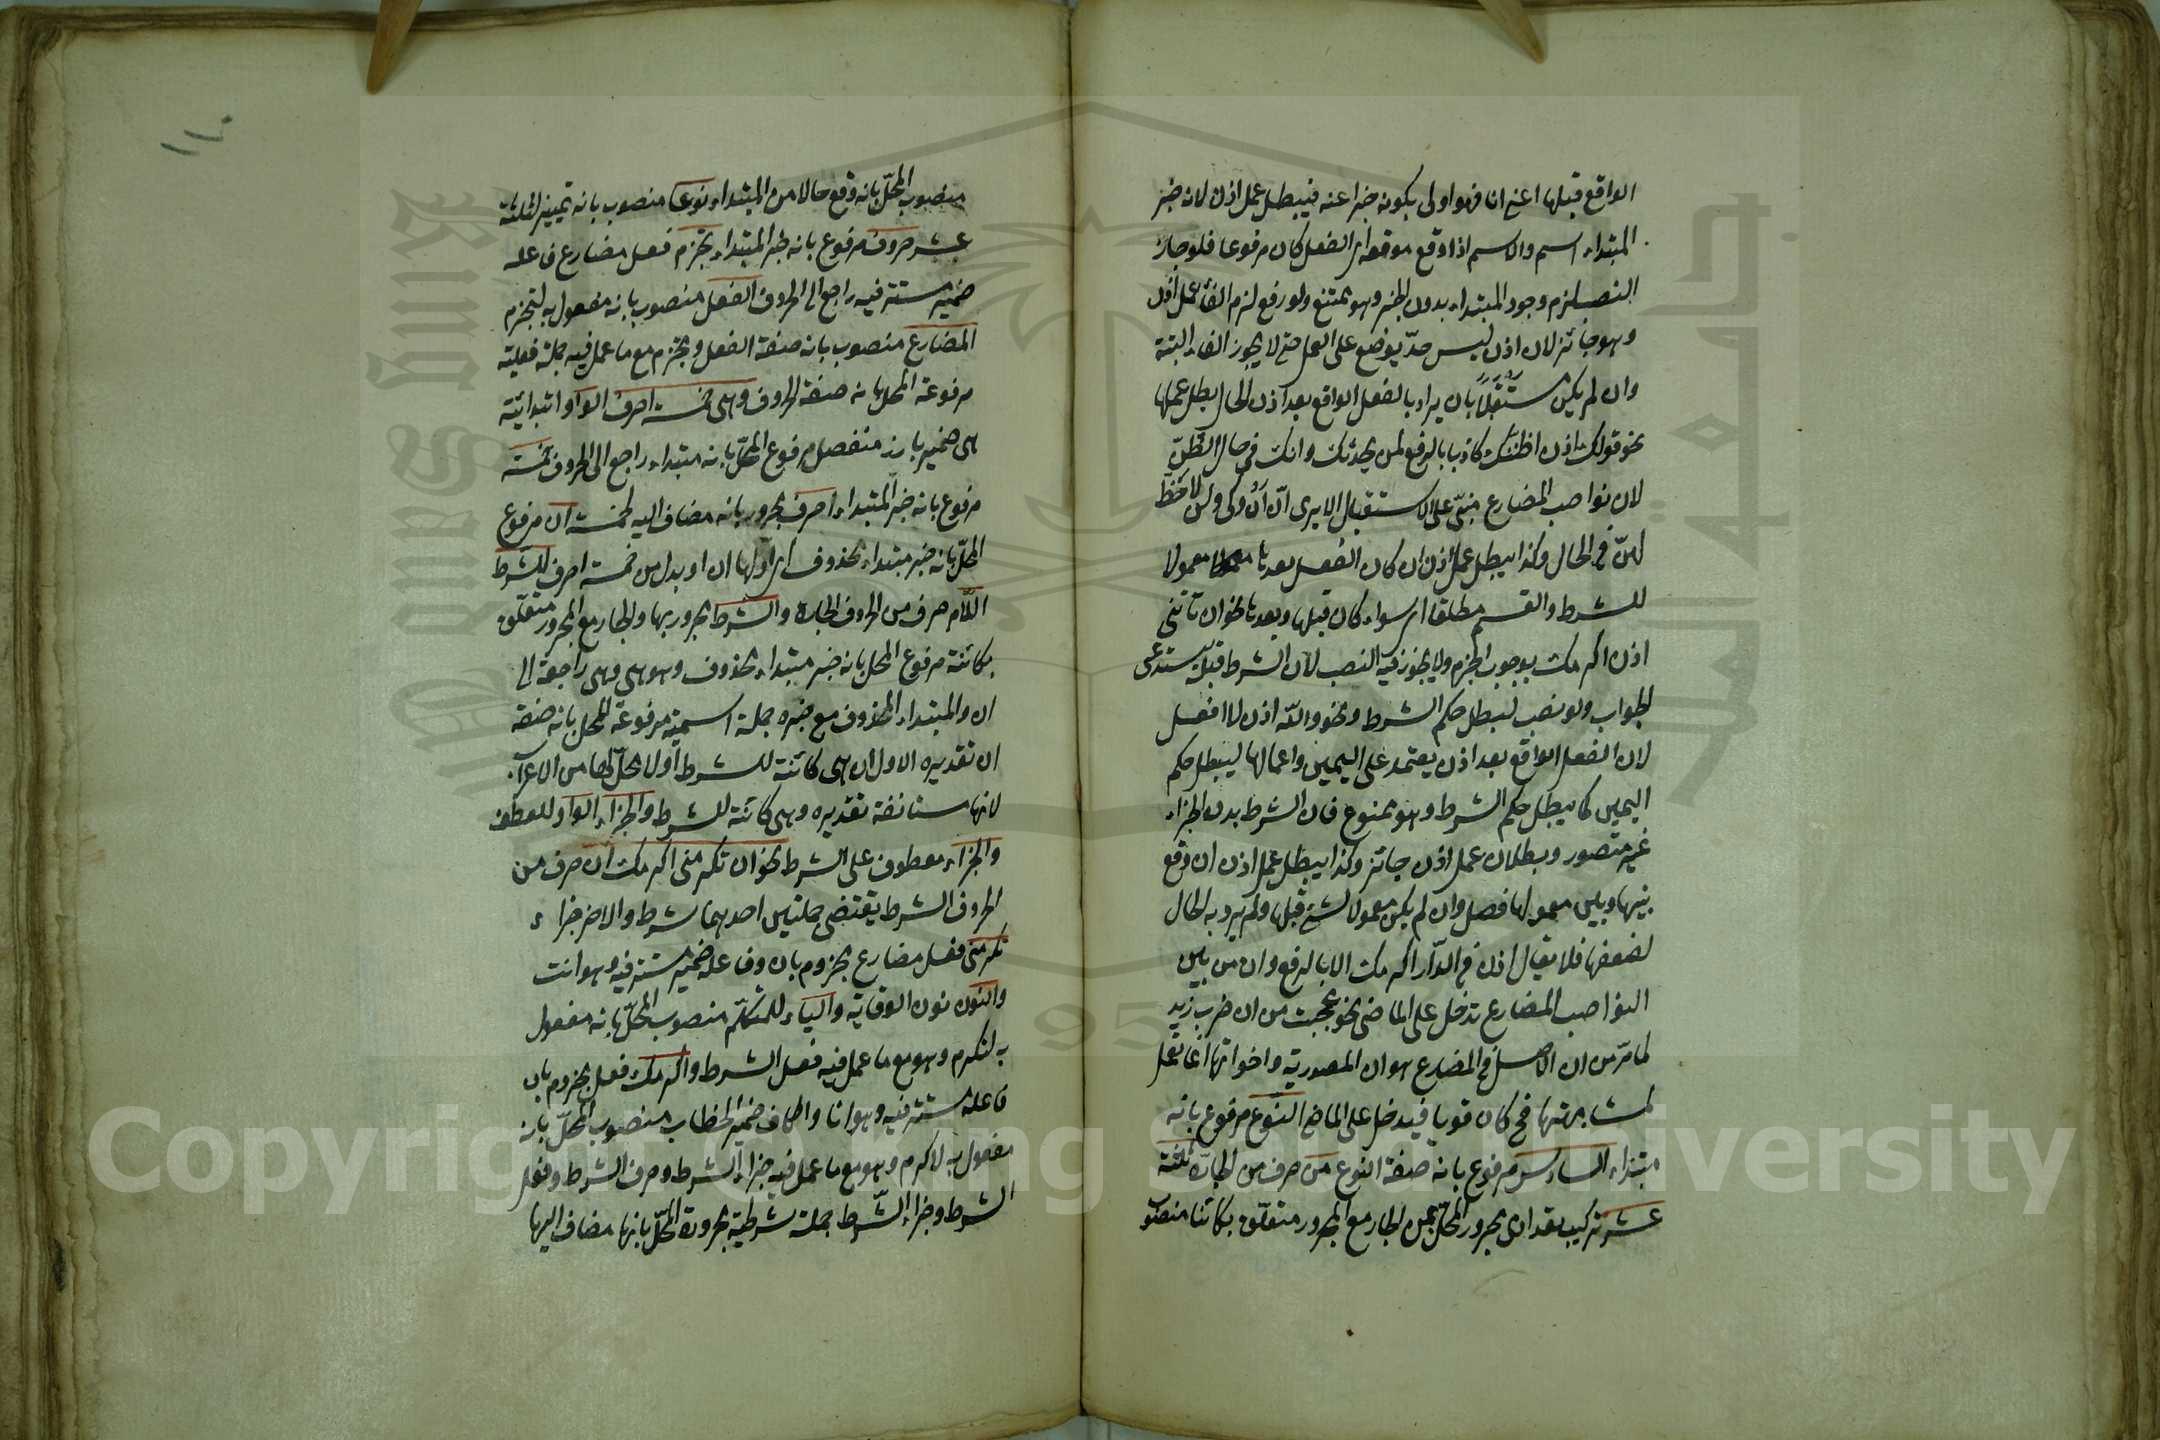 الواقع قبلها اعنى انا فهو اولى بكونه خبرا عنه فيبطل عمل اذن لانه خبر
المبتداء اسم والاسم اذا وقع موقعه اى الفعل كان مرفوعا فلو جاز
النصب لزم وجود المبتداء بدون الخبر وهو ممتنع ولو رفع لزم الغاء عمل اذن
وهو جائز لان اذن ليس حدّ يوضع على العمل حتى لا يجوز الغاء البتة
وان لم يكن مستقبلًا بان يراد بالفعل الواقع بعد اذن الحال بطل عملها
نحو قولك اذن اظنّك كاذبا بالرفع لمن يحدثك وانت فى حال الظنّ
لان نواصب المضارع مبنى على الاستقبال الا يرى انّ اَنْ وكى ولن لا حظّ
لهنّ فى الحال وكذا يبطل عمل اذن ان كان الفعل بعدها معمولا
للشرط والقسم مطلقا اى سواء كان قبلها وبعدها نحو ان تأتنى
اذن اكرمك بوجوب الجزم ولا يجوز فيه النصب لان الشرط قبله يستدعى
الجواب ولو نصب لبطل حكم الشرط ونحو والله اذن لا افعل
لان الفعل الواقع بعد اذن يعتمد على اليمين واعمالها ليبطل حكم
اليمين كما يبطل حكم الشرط وهو ممنوع فان الشرط بدون الجزاء
غير متصور وبطلان عمل اذن جائز وكذا يبطل عمل اذن ان وقع
بينها وبين معمولها فصل وان لم يكن معمولا لشئ قبلها ولم يرد به الحال
لضعفها فلا يقال اذن فى الدّار اكرمك الا بالرفع وان من بين
النواصب المضارع تدخل على الماضى نحو عجبت من ان ضرب زيد
لما مرّ من ان الاصل فى المضارع هو ان المصدرية واخواتها انما تعمل
لمشابهتها فح كان قويا فيدخل على الماضى النّوع مرفوع بانه
مبتداء السادس مرفوع بانه صفة النوع من حرف من الجارّة ثلثة
عشر تركيب تعدادى مجرور المحلّ بمن الجار مع المجرور متعلق بكائنا منصوب
١١٠
منصوب المحلّ بانه وقع حالا من المبتداء نوعا منصوب بانه تمييز لثلثة
عشر حروف مرفوع بانه خبر المبتداء تجزم فعل مضارع فاعله
ضمير مستتر فيه راجع الى الحروف الفعل منصوب بانه مفعول به لتجزم
المضارع منصوب بانه صفة الفعل وتجزم مع ما عمل فيه جملة فعلية
مرفوعة المحل بانه صفة الحروف وهى خمسة احرف الواو ابتدائية
هى ضمير بارز منفصل مرفوع المحلّ بانه مبتداء راجع الى الحروف خمسة
مرفوع بانه خبر المبتداء احرف مجرور بانه مضاف اليه لخمسة ان مرفوع
المحلّ بانه خبر مبتداء محذوف اى اولها ان او بدل من خمسة احرف للشرط
اللّام حرف من الحروف الجارة والشرط مجرور بها والجار مع المجرور متعلق
بكائنة مرفوع المحل بانه خبر مبتداء محذوف وهو هى وهى راجعة الى
ان والمبتداء المحذوف مع خبره جملة اسمية مرفوعة المحل بانه صفة
ان تقديره الاول ان هى كائنة للشرط او لا محلّ لها من الاعراب
لانها مستانفة تقديره وهى كائنة للشرط والجزاء الواو للعطف
والجزاء معطوف على الشرط نحو ان تكرمنى اكرمك ان حرف من
الحروف الشرط يقتضى جملتين احديهما شرط والاخر جزاء
تكرمنى فعل مضارع مجزوم بان وفاعله ضمير مستتر فيه وهو انت
والنون نون الوقاية والياء للمتكلّم منصوب المحلّ بانه مفعول
به لتكرم وهو مع ما عمل فيه فعل الشرط واكرمك فعل مجزوم بان
فاعله مستتر فيه وهو انا والكاف ضمير الخطاب منصوب المحلّ بانه
مفعول به لاكرم وهو مع ما عمل فيه جزاء الشرط وحرف الشرط وفعل
الشرط وجزاء الشرط جملة شرطية مجرورة المحلّ بانها مضاف اليها
Copyright © King Saud University